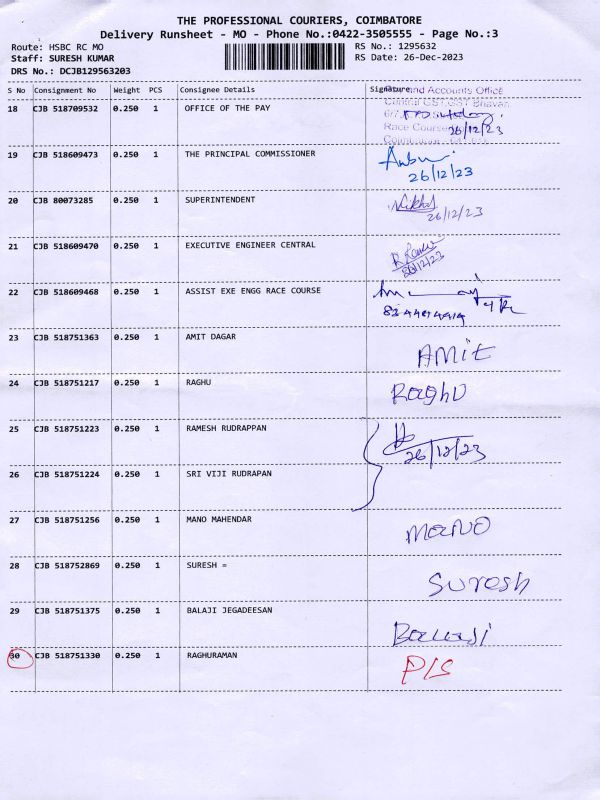 THE PROFESSIONAL COURIERS, COIMBATORE
Delivery Runsheet - MO - Phone No.:0422-3505555 - Page No.:3
Route: HSBC RC MO RS No.: 1295632
Staff: SURESH KUMAR RS Date: 26-Dec-2023
DRS No.: DCJB129563203
S No Consignment No Weight PCS Consignee Details Signature
and Accounts Office
Central GST, GST Bhavan
6/7
18 CJB 518709532 0.250 1 OFFICE OF THE PAY
Race Course 26/12/23
19 CJB 518609473 0.250 1 THE PRINCIPAL COMMISSIONER Anbu
26/12/23
20 CJB 80073285 0.250 1 SUPERINTENDENT Nikhil
26/12/23
21 CJB 518609470 0.250 1 EXECUTIVE ENGINEER CENTRAL
26/12/23
22 CJB 518609468 0.250 1 ASSIST EXE ENGG RACE COURSE
23 CJB 518751363 0.250 1 AMIT DAGAR AMit
24 CJB 518751217 0.250 1 RAGHU RaghU
25 CJB 518751223 0.250 1 RAMESH RUDRAPPAN
26/12/23
26 CJB 518751224 0.250 1 SRI VIJI RUDRAPAN
27 CJB 518751256 0.250 1 MANO MAHENDAR maNO
28 CJB 518752869 0.250 1 SURESH = Suresh
29 CJB 518751375 0.250 1 BALAJI JEGADEESAN
30 CJB 518751330 0.250 1 RAGHURAMAN P/S